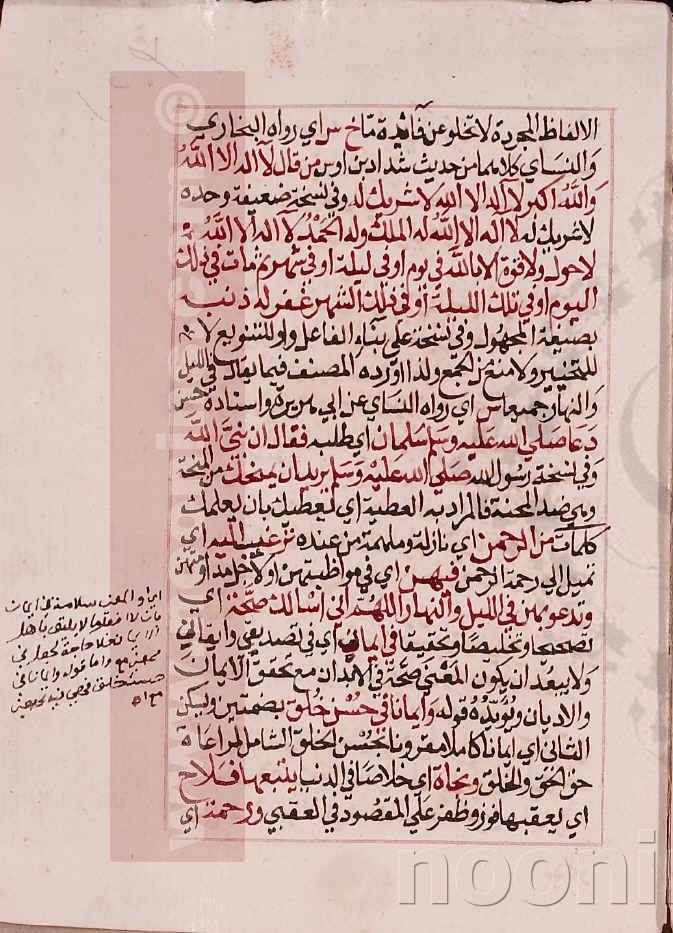 الالفاظ المجودة لا تخلو عن فائدة ما خ س اي رواه البخاري
والنساي كلاهما من حديث شداد بن اوس من قال لا اله الا الله
والله اكبر لا اله الا الله لا شريك له وفي نسخة ضعيفة وحده
لا شريك له لا اله الا الله له الملك وله الحمد لا اله الا الله و
لا حول ولا قوة الا بالله في يوم او في ليلة او في شهر ثم مات في ذلك
اليوم او في تلك الليلة او في ذلك الشهر غفر له ذنبه
بصيغة المجهول وفي نسخة على بناء الفاعل واو للتنويع لا
للتخيير ولا منع من الجمع ولذا اورده المصنف فيما يقال في الليل
والنهار جميعا س اي رواه النساي عن ابي هريرة واسناده حسن
دعا صلى الله عليه وسلم سلمان اي طلبه فقال ان نبي الله
وفي نسخة رسول الله صلى الله عليه وسلم يريد ان يمنحك من المنحة
وهي ضد المحنة فالمراد به العطية اي يعطيك بان يعلمك
كلمات من الرحمن اي نازلة وملهمة من عنده ترغب اليه اي
تميل الى رحمة الرحمن فيهن اي في مواظبتهن
وتدعو بهن في الليل والنهار اللهم اني اسالك صحة اي
تصحيحا وتخليصا وتحقيقا في ايمان اي في تصديقي وايقاني
ولا يبعد ان يكون المعنى صحة في الابدان مع تحقق الايمان
والاديان ويؤيده قوله وايمانا في حسن خلق بضمتين ويسكن
الثاني اي ايمانا كاملا مقرونا بحسن الخلق الشامل لمراعاة
حق الحق والخلق ونجاة اي خلاصا في الدنيا يتبعها فلاح
اي يعقبها فوز وظفر على المقصود في العقبى ورحمة اي
اي والمعنى سلامة في ايمان
nooni